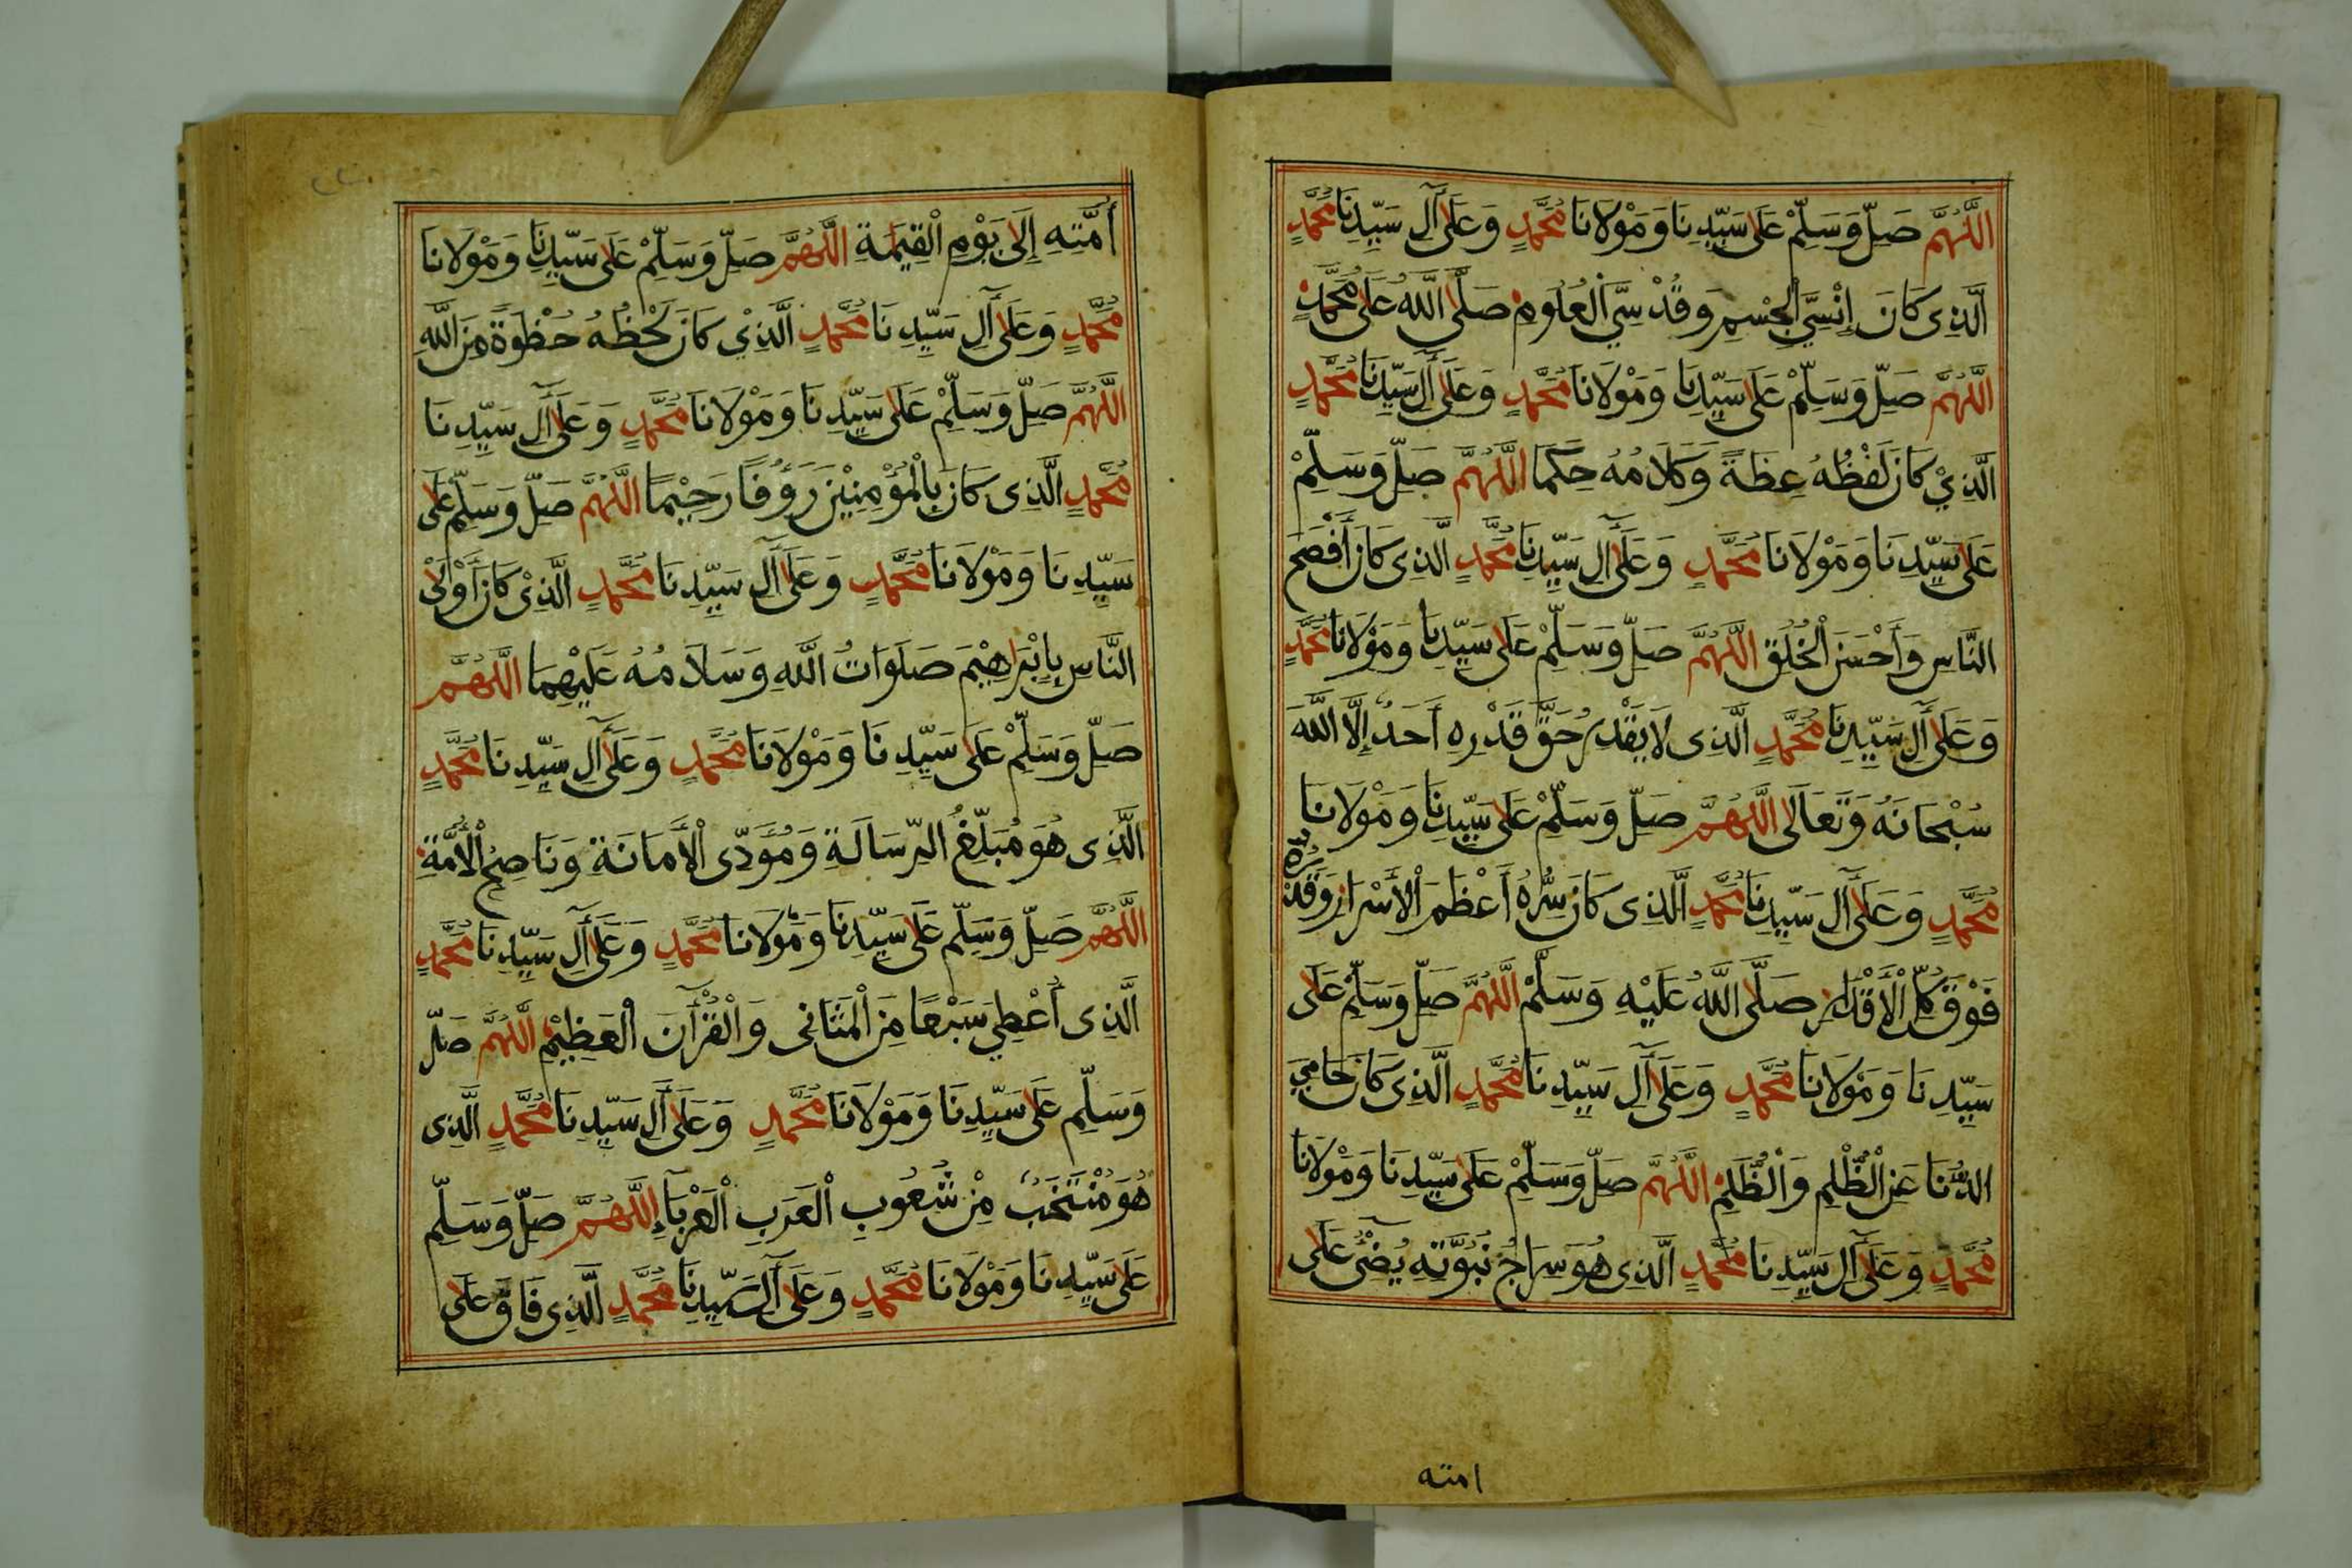 اللَّهُمَّ صَلِّ وَسَلِّمْ عَلَى سَيِّدِنَا وَمَوْلَانَا مُحَمَّدٍ وَعَلَى آلِ سَيِّدِنَا مُحَمَّدٍ
الَّذِي كَانَ إِنْسِيَّ الْجِسْمِ وَقُدْسِيَّ الْعُلُومِ صَلَّى اللَّهُ عَلَى مُحَمَّدٍ
اللَّهُمَّ صَلِّ وَسَلِّمْ عَلَى سَيِّدِنَا وَمَوْلَانَا مُحَمَّدٍ وَعَلَى آلِ سَيِّدِنَا مُحَمَّدٍ
الَّذِيْ كَانَ لَفْظُهُ عِظَةً وَكَلَامُهُ حِكَمًا اللَّهُمَّ صَلِّ وَسَلِّمْ
عَلَى سَيِّدِنَا وَمَوْلَانَا مُحَمَّدٍ وَعَلَى آلِ سَيِّدِنَا مُحَمَّدٍ الَّذِى كَانَ أَفْصَحَ
النَّاسِ وَأَحْسَنَ الْخُلُقِ اللَّهُمَّ صَلِّ وَسَلِّمْ عَلَى سَيِّدِنَا وَمَوْلَانَا مُحَمَّدٍ
وَعَلَى آلِ سَيِّدِنَا مُحَمَّدٍ الَّذِى لَا يَقْدُرُ حَقَّ قَدْرِهِ أَحَدٌ إِلَّا اللَّهَ
سُبْحَانَهُ وَتَعَالَى اللَّهُمَّ صَلِّ وَسَلِّمْ عَلَى سَيِّدِنَا وَمَوْلَانَا
مُحَمَّدٍ وَعَلَى آلِ سَيِّدِنَا مُحَمَّدٍ الَّذِى كَانَ سِرُّهُ أَعْظَمَ الْأَسْرَارِ وَقَدْرُهُ
فَوْقَ كُلِّ الْأَقْدَارِ صَلَّى اللَّهُ عَلَيْهِ وَسَلَّمْ اللَّهُمَّ صَلِّ وَسَلِّمْ عَلَى
سَيِّدِنَا وَمَوْلَانَا مُحَمَّدٍ وَعَلَى آلِ سَيِّدِنَا مُحَمَّدٍ الَّذِى كَانَ حَامِيَ
الدُّنَا عَنِ الظُّلْمِ وَالظُّلَمِ اللَّهُمَّ صَلِّ وَسَلِّمْ عَلَى سَيِّدِنَا وَمَوْلَانَا
مُحَمَّدٍ وَعَلَى آلِ سَيِّدِنَا مُحَمَّدٍ الَّذِى هُوَ سِرَاجُ نُبُوَّتِهِ يُضْئُ عَلَى
امته
أُمَّتِهِ إِلَى يَوْمِ الْقِيٰمَةِ اللَّهُمَّ صَلِّ وَسَلِّمْ عَلَى سَيِّدِنَا وَمَوْلَانَا
مُحَمَّدٍ وَعَلَى آلِ سَيِّدِنَا مُحَمَّدٍ الَّذِيْ كَانَ لَحْظُهُ حُظْوَةً مِنَ اللَّهِ
اللَّهُمَّ صَلِّ وَسَلِّمْ عَلَى سَيِّدِنَا وَمَوْلَانَا مُحَمَّدٍ وَعَلَى آلِ سَيِّدِنَا
مُحَمَّدٍ الَّذِى كَانَ بِالْمُؤْمِنِيْنَ رَؤُفًا رَحِيْمًا اللَّهُمَّ صَلِّ وَسَلِّمْ عَلَى
سَيِّدِنَا وَمَوْلَانَا مُحَمَّدٍ وَعَلَى آلِ سَيِّدِنَا مُحَمَّدٍ الَّذِىْ كَانَ أَوْلَى
النَّاسِ بِإِبْرَاهِيْمَ صَلَوَاتُ اللَّهِ وَسَلَامُهُ عَلَيْهِمَا اللَّهُمَّ
صَلِّ وَسَلِّمْ عَلَى سَيِّدِنَا وَمَوْلَانَا مُحَمَّدٍ وَعَلَى آلِ سَيِّدِنَا مُحَمَّدٍ
الَّذِى هُوَ مُبَلِّغُ الرِّسَالَةِ وَمُؤَدِّى الْأَمَانَةِ وَنَاصِحُ الْأُمَّةِ
اللَّهُمَّ صَلِّ وَسَلِّمْ عَلَى سَيِّدِنَا وَمَوْلَانَا مُحَمَّدٍ وَعَلَى آلِ سَيِّدِنَا مُحَمَّدٍ
الَّذِى أُعْطِيَ سَبْعًا مِنَ الْمَثَانِى وَالْقُرْآنَ الْعَظِيْمَ اللَّهُمَّ صَلِّ
وَسَلِّمْ عَلَى سَيِّدِنَا وَمَوْلَانَا مُحَمَّدٍ وَعَلَى آلِ سَيِّدِنَا مُحَمَّدٍ الَّذِى
هُوَ مُنْتَخَبٌ مِنْ شُعُوبِ الْعَرَبِ الْعَرْبَاءِ اللَّهُمَّ صَلِّ وَسَلِّمْ
عَلَى سَيِّدِنَا وَمَوْلَانَا مُحَمَّدٍ وَعَلَى آلِ سَيِّدِنَا مُحَمَّدٍ الَّذِى فَاقَ عَلَى